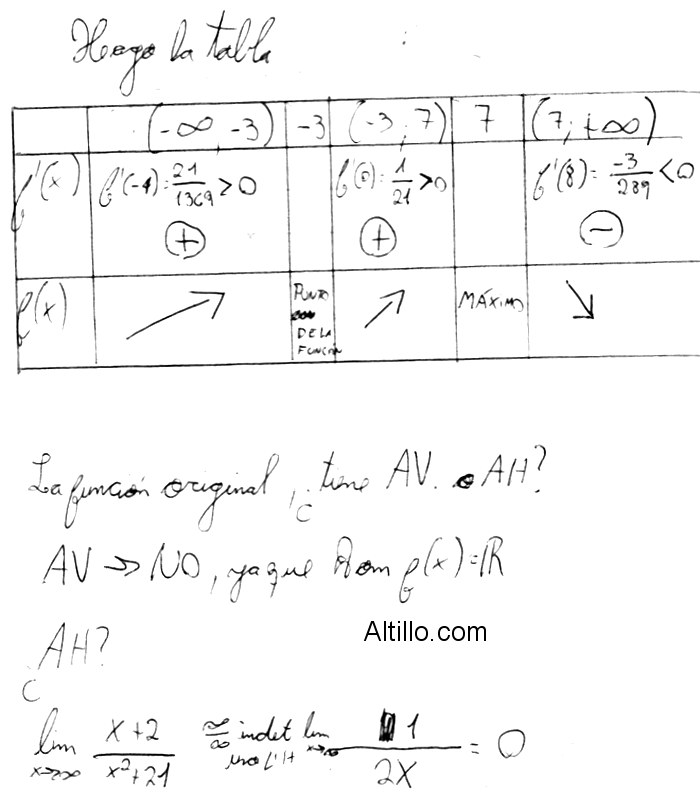 Hago la tabla
(-∞, -3) -3 (-3; 7) 7 (7; +∞)
f'(x) f'(-4) = 21/1369 > 0 f'(0) = 1/21 > 0 f'(8) = -3/289 < 0
+ + −
f(x) ↗ PUNTO DE LA FUNCIÓN ↗ MÁXIMO ↘
La función original, ¿tiene AV. o AH?
AV → NO, ya que Dom f(x) = ℝ
Altillo.com
¿AH?
lim x→∞ x+2/x²+21 ∞/∞ indet uso L'H lim x→∞ 1/2x = 0